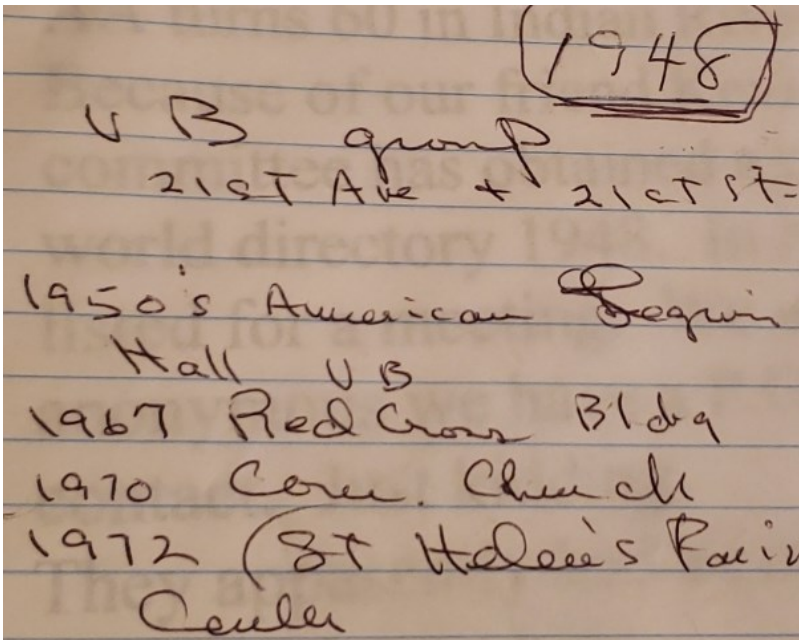 1948
VB group
21st Ave + 21st St-
1950's American Legion
Hall VB
1967 Red Cross Bldg
1970 Com. Church
1972 (St Helen's
Center